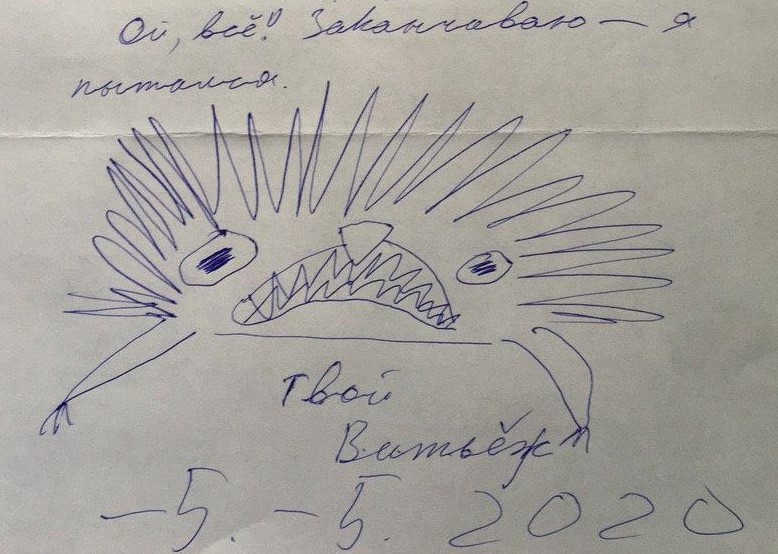 Ой, всё! Заканчиваю — я
пытался.
Твой
Витьёж
-5. -5. 2020